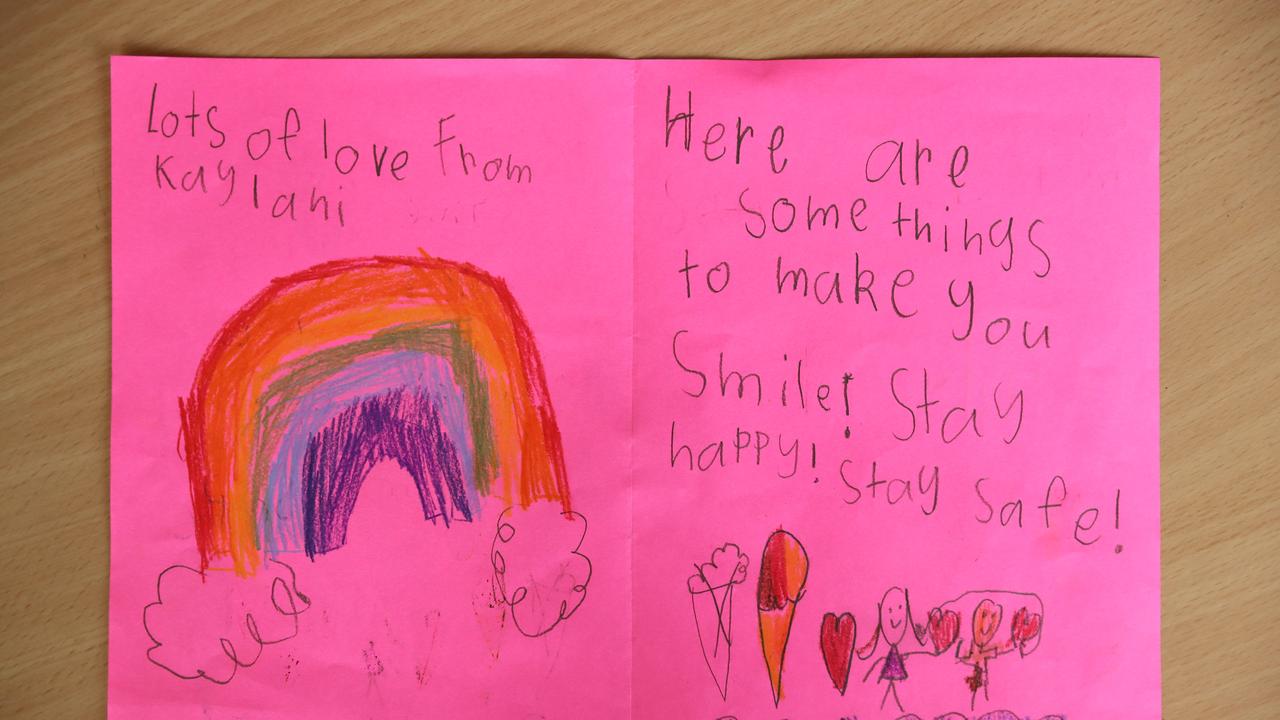 Lots of love From
Kaylani
Here are
some things
to make you
Smile! Stay
happy! Stay safe!